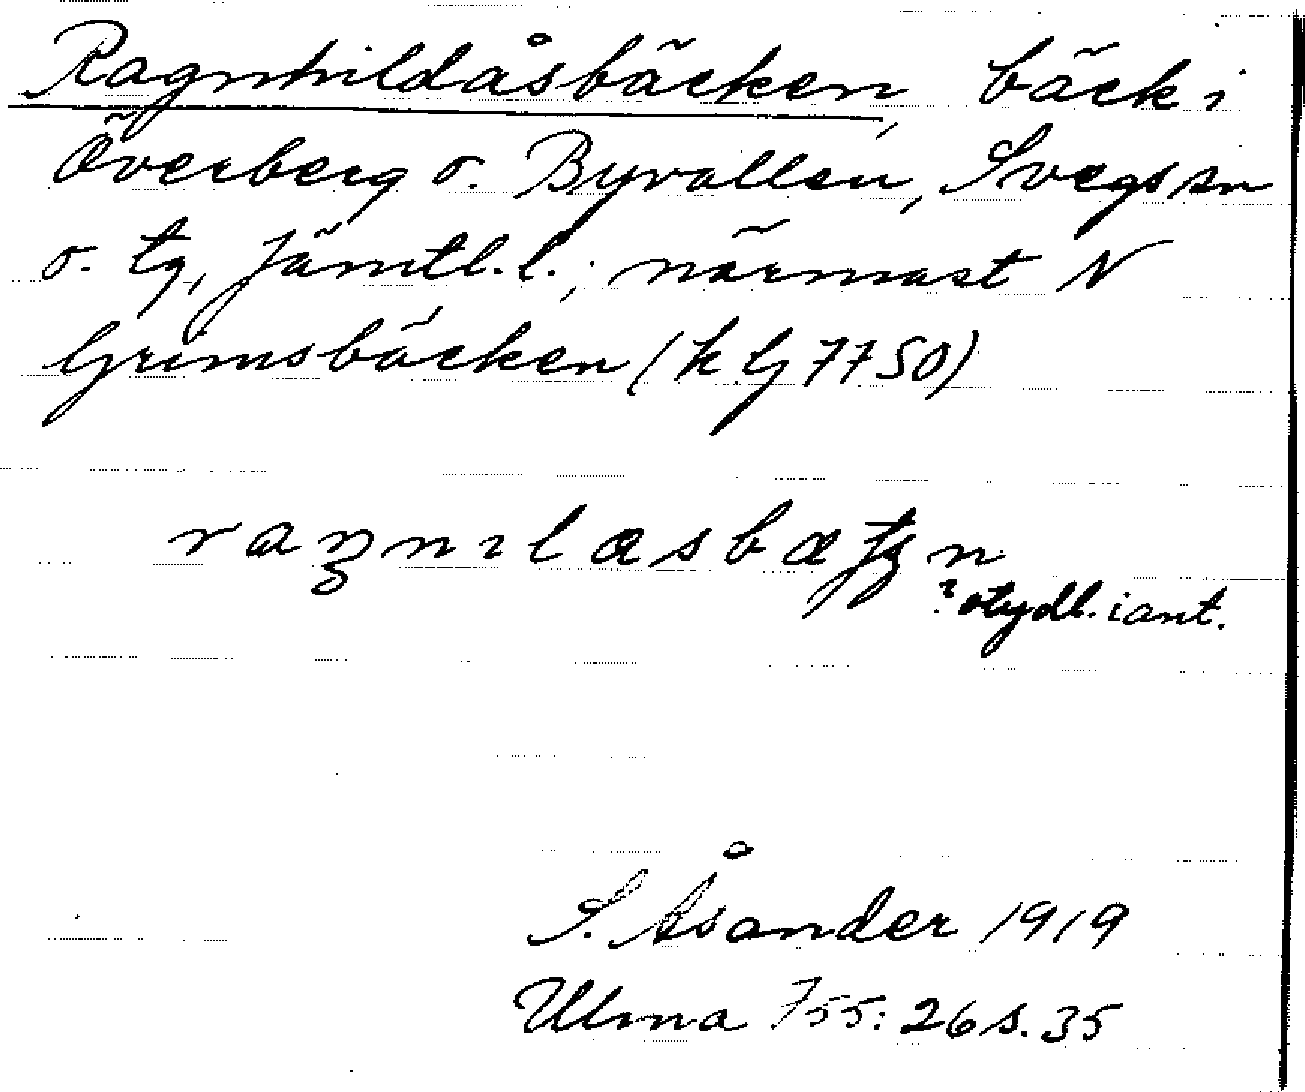 Ragnhildåsbäcken, bäck i
Överberg o. Byvallen, Svegs sn
o. tg, Jämtl. l.; närmast N
Grimsbäcken (k G 7750)
? otydl. i ant.
S. Åsander 1919
Ulma 755:26 s. 35